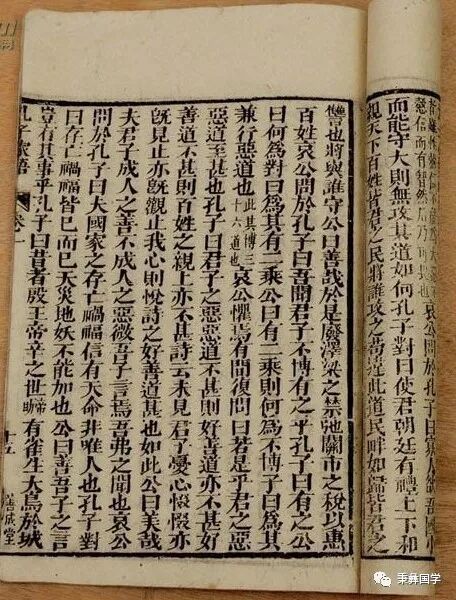 愨信而有智然后乃可畏也 哀公問於孔子曰寡人欲吾國小
而能守大則無攻其道如何孔子對曰使君朝廷有禮上下和
親天下百姓皆君之民將誰攻之苟違此道民畔如歸皆君之
讐也將與誰守公曰善哉於是廢澤梁之禁弛關市之稅以惠
百姓哀公問於孔子曰吾聞君子不博有之乎孔子曰有之公
曰何為對曰爲其有二乘公曰有二乘則何爲不博子曰爲其
兼行惡道也此其博三十六道也哀公懼焉有間復問曰若是乎君之惡
惡道至甚也孔子曰君子之惡惡道不甚則好善道亦不甚好
善道不甚則百姓之親上亦不甚詩云未見君子憂心惙惙亦
既見止亦既覯止我心則悅詩之好善道甚也如此公曰美哉
夫君子成人之善不成人之惡微吾子言焉吾弗之聞也哀公
問於孔子曰夫國家之存亡禍福信有天命非唯人也孔子對
曰存亡禍福皆己而已天災地妖不能加也公曰善吾子之言
豈有其事乎孔子曰昔者殷王帝辛之世有雀生大鳥於城
孔子家語 卷一 十五 善成堂
秉彝国学